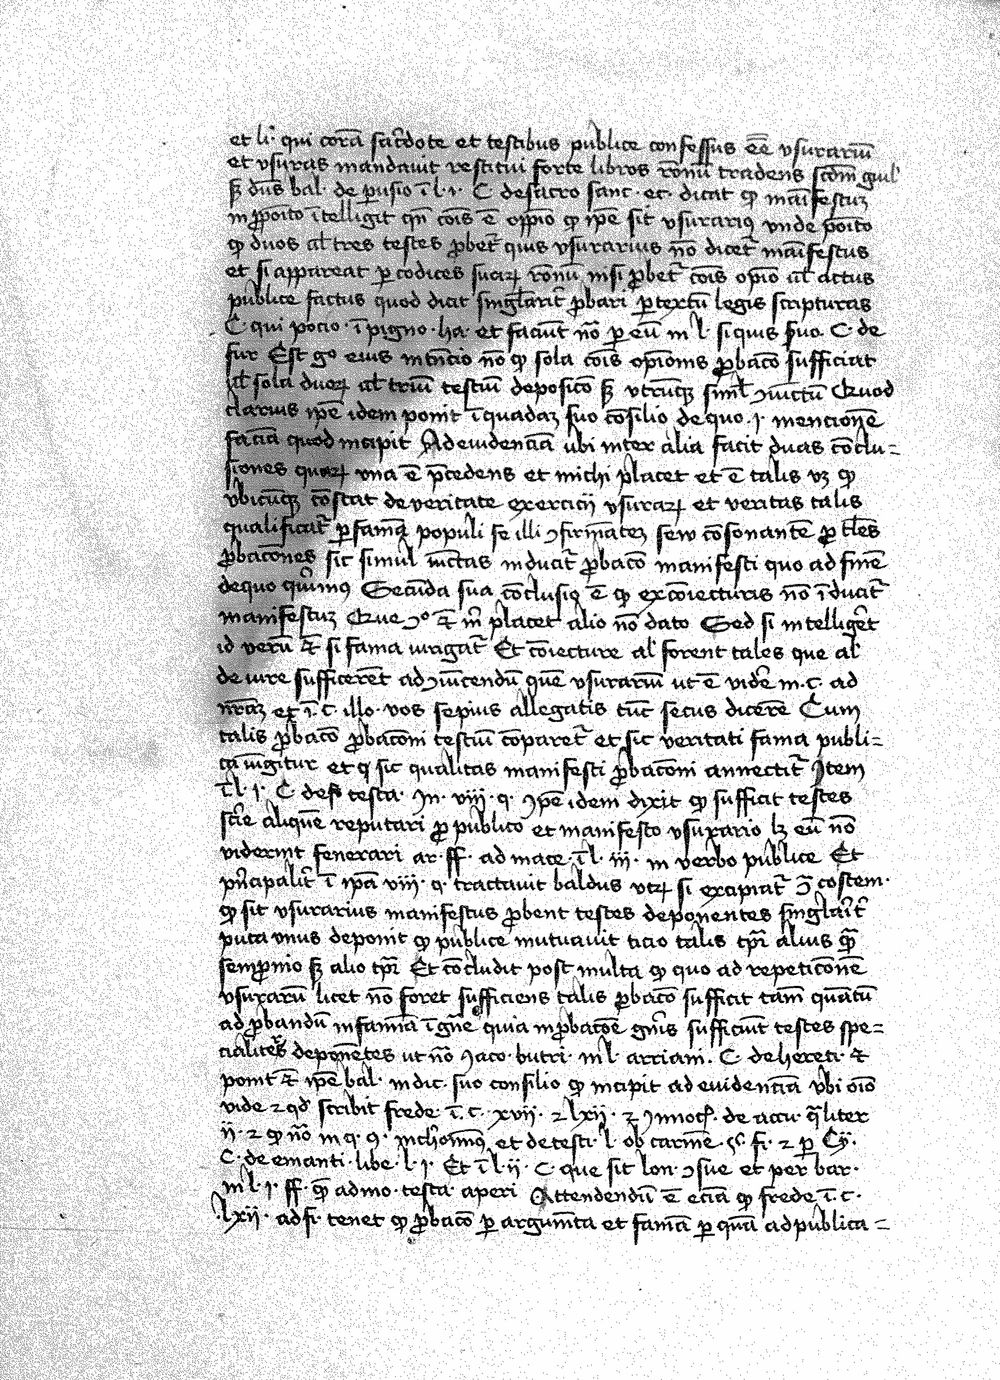 et li. qui corā sac̄dote et testibus publice confessus eē̄ vsurariū
et vsuras mandauit restitui forte libros rōnū tradens scdm̄ guil
sꝫ dn̄s bal. de ꝑusio ī l. i. C de sacro sanc. ec. dicat ꝙ māifestuꝫ
in ꝓpoīto ītelligit qn̄ cōis ē oppīo ꝙ ip̄e sit vsurariꝰ vnde poīto
ꝙ duos al̄ tres testes ꝓbet̄ qius vsurarius nō dicet̄ māifestus
et si appareat ꝑ codices suaꝝ rōnū nisi ꝓbet̄ cōis opīo ul̄ actus
publice factus quod dicit singl̄arit̄ ꝓbari ꝑ textū legis scripturas
C. qui pocio. ī pigno. ha. et faciūt nō ꝑ eū in l. si quis
fur Est gͦ eius intn̄cio nō ꝙ sola cōis opīonis ꝓbacō sufficiat
ul̄ sola duoꝝ al̄ triū testiū deposicō sꝫ vtrūqꝫ simł ꝯiūctū Quod
clarius ip̄e idem ponit ī quadaꝫ suo cōsilio de quo .i. mencionē
faciā quod incipit Ad euidenciā ubi inter alia facit duas cōclu-
siones quaꝝ vna ē p̄cedens et michi placet et ē talis vꝫ ꝙ
vbicūqꝫ cōstat de veritate exercicij vsuraꝝ et veritas talis
qualificat̄ ꝑ famā populi se illi ꝯfirmateꝫ seu cōsonantē ꝓ tl̄es
ꝓbacōnes sic simul iūctas inducit̄ ꝓbacō manifesti quo ad finē
de quo qͥrimꝰ Secūda sua cōclusiō ē ꝙ ex cōiecturis nō īducit̄
manifestuꝫ placet alio nō dato Sed si intelligēt
id verū si fama uirgat̄ Et cōiecture al̄ forent tales que al̄
de iure sufficerēt ad ꝯiūcendū quē vsurariū ut ē vidēe in. c. ad
nr̄aꝫ ex̄ ī. c. illo. vos sepius allegatis tūc secus dicēre Cum
talis ꝓbacō ꝓbacōni testiū cōparet̄ et sic veritati fama publi-
ca iūgitur et q sic qualitas manifesti ꝓbacōni annectit̄ Item
ī l. i. C de testa. In. viij. q. ip̄e idem dixit ꝙ sufficit testes
scīe aliquē reputari ꝓ publico et manifesto vsurario lꝫ eū nō
viderint fenerari ar. ff. ad mace. ī l. iij. in verbo publice Et
pn̄cipalit̄ ī ip̄a viij. q. tractauit baldus vtꝝ si excipiat̄ ꝯ̄ costem.
ꝙ sit vsurarius manifestus ꝓbent testes deponentes singl̄arit̄
puta vnus deponit ꝙ publice mutuauit ticio talis tp̄ri alius ꝙ̄
sempronio sꝫ alio tp̄ri Et cōcludit post multa ꝙ quo ad repeticōnē
vsurarū licet nō foret sufficiens talis ꝓbacō sufficit tam̄ quātū
ad ꝓbandū infamiā ī gn̄e quia in ꝓbacōe gn̄is sufficiūt testes spe-
cialites deponētes ut nō Jaco. butri. in l. arriani. C. de hereti. et
ponit ip̄e bal. in dic. suo consilio ꝙ incipit ad euidenciā vbi oīo
vide ⁊ qd̄ scribit frede ī. c. xvij. ⁊ lxij. ⁊ Innoc̄. de accu. q̄liter
ij. ⁊ ꝙ nō in q. et de testi. l. ob carmē. §. fi. ⁊ ꝑ Cy.
C. de emanti. libe. l. i. Et ī l. ij. C. que sit lon. ꝯsue et per bar.
in l. i. ff. ꝙ̄ admo. testa. aperi Attendendū ē eciā ꝙ frede ī. c.
.lxij. ad fi. tenet ꝙ ꝓbacō ꝑ argum̄ta et famā ꝑ quā ad publica-